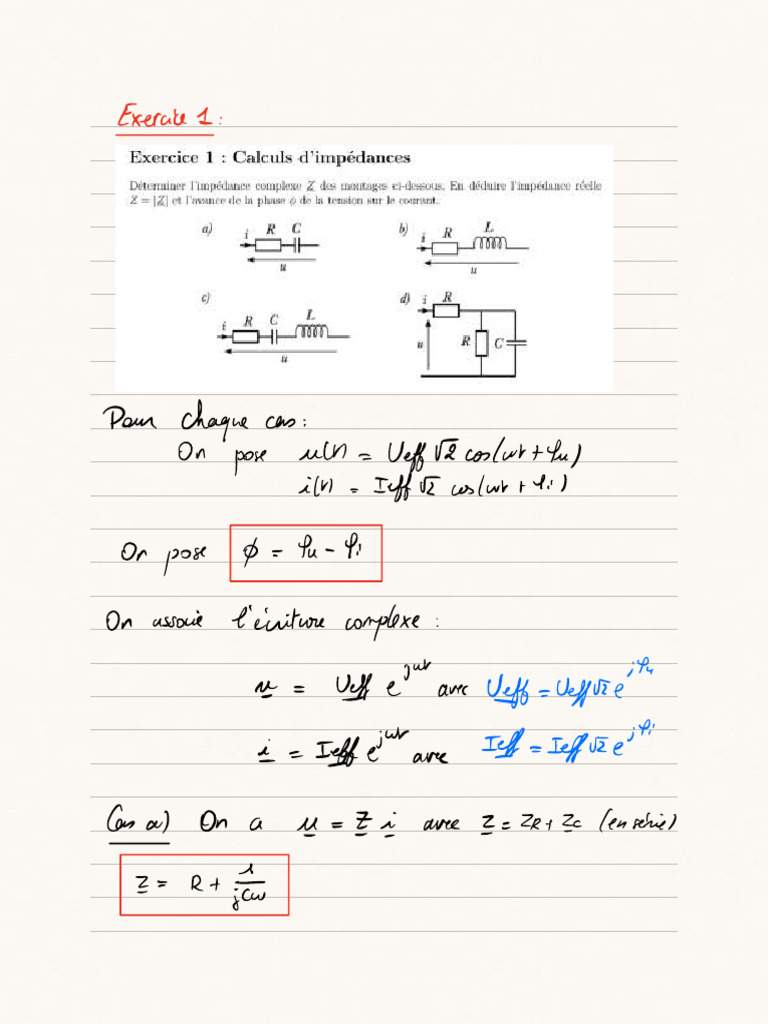 Exercice 1 :
Exercice 1 : Calculs d'impédances
Déterminer l'impédance complexe Z des montages ci-dessous. En déduire l'impédance réelle
Z = |Z| et l'avance de la phase ϕ de la tension sur le courant.
a) i R C u
b) i R L u
c) i R C L u
d) i R u R C
Pour chaque cas :
On pose u(t) = Ueff √2 cos(ωt + φu)
i(t) = Ieff √2 cos(ωt + φi)
On pose ϕ = φu - φi
On associe l'écriture complexe :
u = Ueff e^jωt avec Ueff = Ueff √2 e^jφu
i = Ieff e^jωt avec Ieff = Ieff √2 e^jφi
Cas a) On a u = Z i avec Z = ZR + ZC (en série)
Z = R + 1/jCω